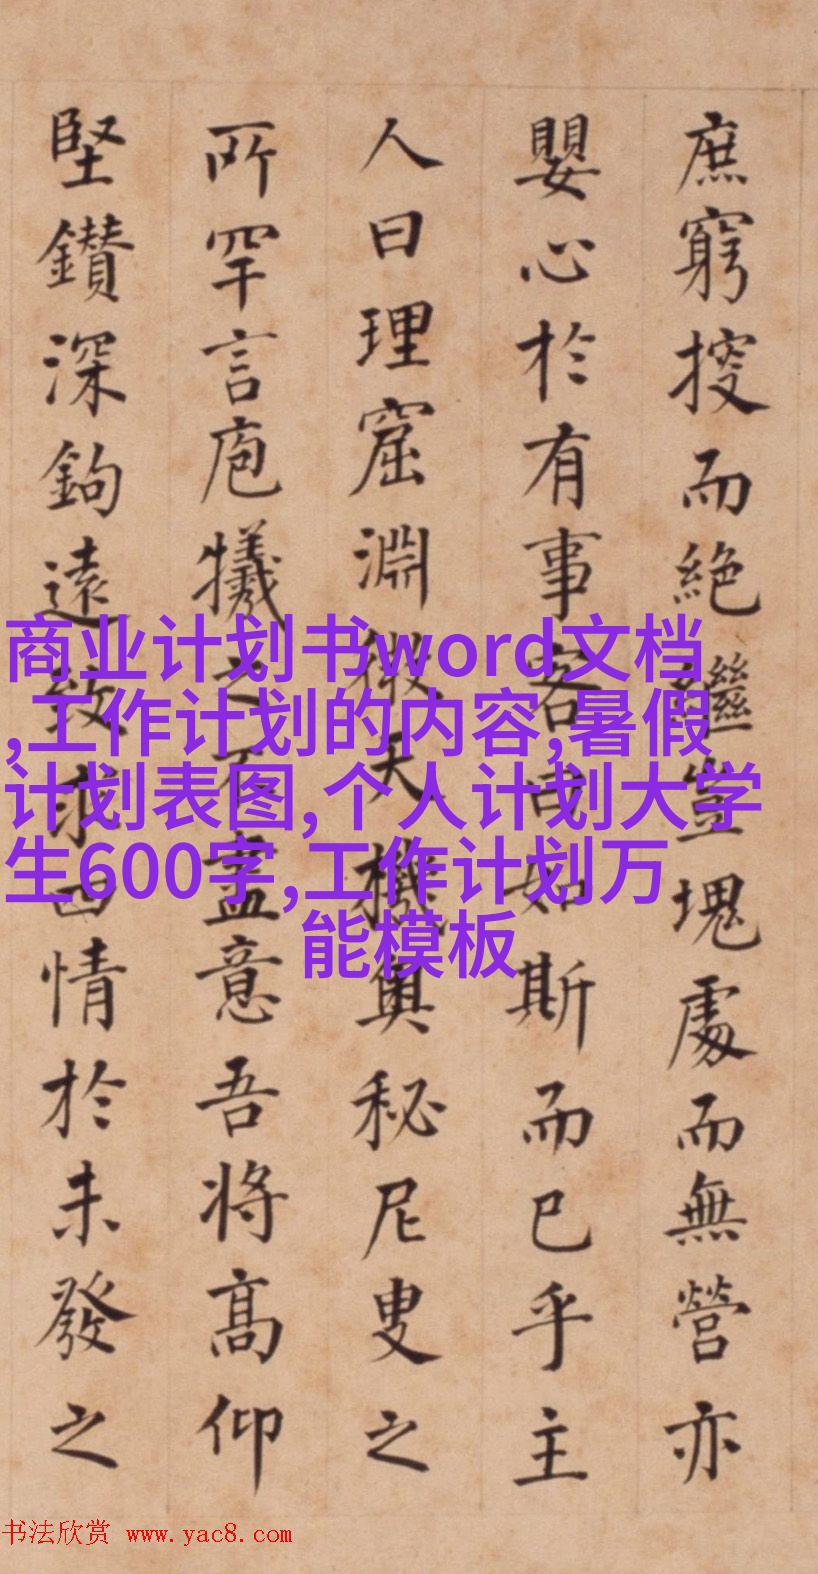 庶窮搜而絶繼豈塊處而無營亦
嬰心於有事客曰如斯而已乎主
人曰理窟淵微天機奥秘尼叟之
所罕言庖犧之不盡意吾将高仰
堅鑽深鉤遠致求四情於未發之
商业计划书word文档
,工作计划的内容,暑假
计划表图,个人计划大学
生600字,工作计划万
能模板
书法欣赏 www.yac8.com